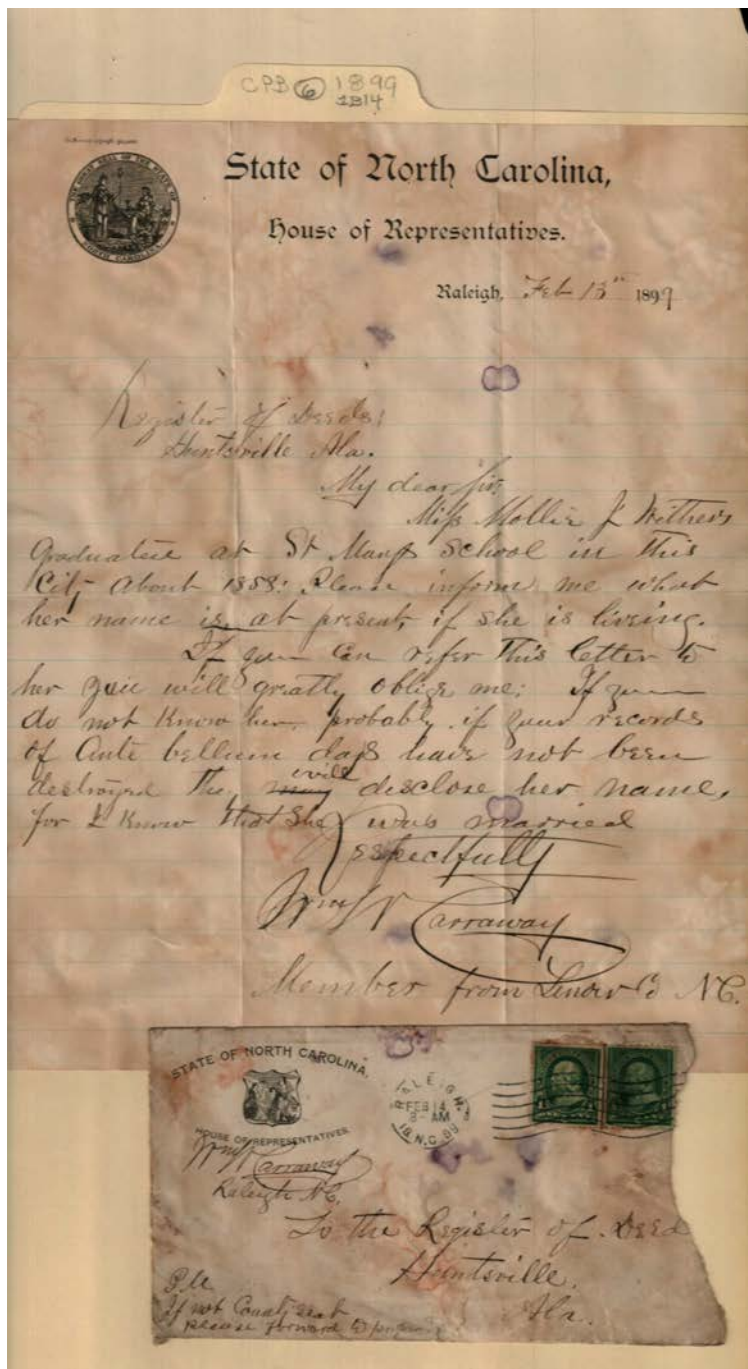 CPB 6 1899
1B14
THE GREAT SEAL OF THE STATE OF NORTH CAROLINA
State of North Carolina,
House of Representatives.
Raleigh, Feb 13th 1899
Register of Deeds:
Huntsville Ala.
My dear Sir,
Miss Mollie J Withers
graduated at St Marys School in this
City about 1858: Please inform me what
her name is, at present, if she is liveing.
If you can refer this letter to
her you will greatly oblige me: If you
do not know her, probably if your records
of Ante bellum days have not been
destroyed they may will disclose her name,
for I know that she was married
Respectfully
Wm W Carraway
Member from Lenoir Co NC.
STATE OF NORTH CAROLINA.
HOUSE OF REPRESENTATIVES
Wm W Carraway
Raleigh NC.
RALEIGH,
FEB 14
8-AM
N.C. 99
To the Register of Deed
Huntsville.
Ala.
If not County seat
please forward to